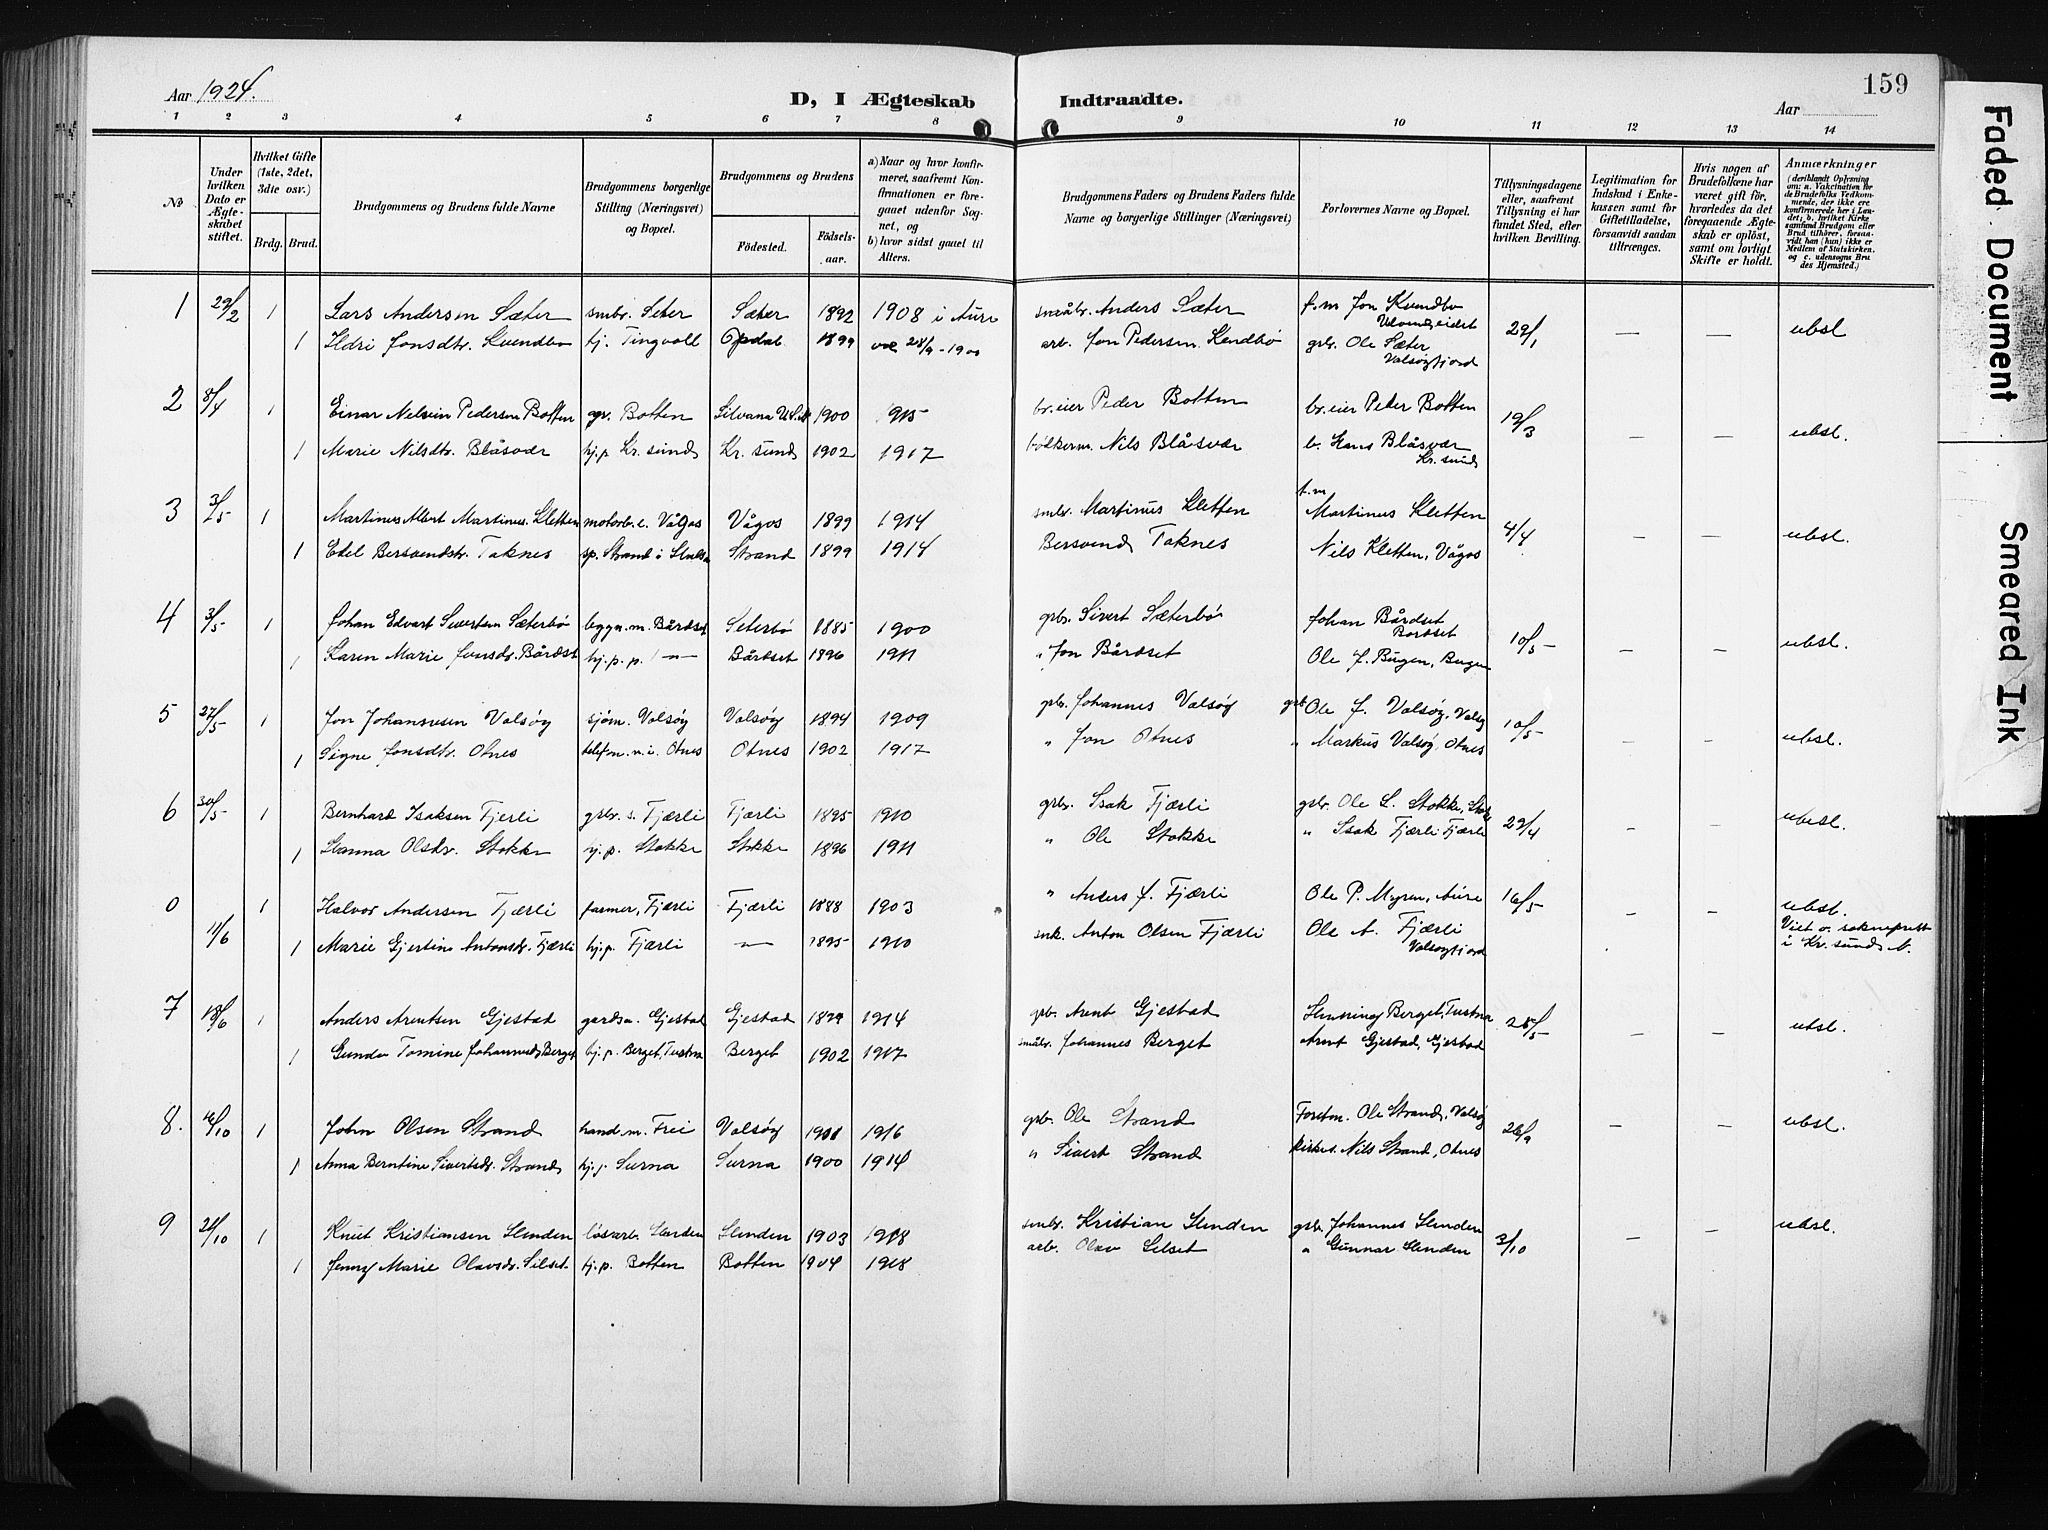 159
Aar 1924.
D, I Ægteskab Indtraadte.
Aar
1 2 3 4 5 6 7 8 9 10 11 12 13 14
No
Under hvilken Dato er Ægteskabet stiftet.
Hvilket Gifte (1ste, 2det, 3die osv.)
Brdg. Brud.
Brudgommens og Brudens fulde Navne
Brudgommens borgerlige Stilling (Næringsvei) og Bopæl.
Brudgommens og Brudens
Födested. Födselsaar.
a) Naar og hvor konfirmeret, saafremt Konfirmationen er foregaaet udenfor Sognet, og
b) hvor sidst gaaet til Alters.
Brudgommens Faders og Brudens Faders fulde Navne og borgerlige Stillinger (Næringsvei)
Forlovernes Navne og Bopæl.
Tillysningsdagene eller, saafremt Tillysning ei har fundet Sted, efter hvilken Bevilling.
Legitimation for Indskud i Enkekassen samt for Giftetilladelse, forsaavidt saadan tiltrænges.
Hvis nogen af Brudefolkene har været gift för, hvorledes da det foregaaende Ægteskab er oplöst, samt om lovligt Skifte er holdt.
Anmærkninger (deriblandt Oplysning om: a. Vakcination for de Brudefolks Vedkommende, der ikke ere konfirmerede her i Landet; b. hvilket Kirkesamfund Brudgom eller Brud tilhörer, forsaavidt han (hun) ikke er Medlem af Statskirken. og c. udensogns Brudes Hjemsted.)
1 29/2 1 Lars Andersen Sæter smbr. Seter Sæter 1892 1908 i Aure småbr. Anders Sæter f.m Jon Kvendbo 29/1 — — ubsl
1 Ildri Jonsdtr. Kvendbo hj. Tingvoll Opdal 1899 28/9-1900 arb. Jon Pedersen Kendbø grbr. Ole Sæter
Valsøyfjord
2 8/4 1 Einar Nelvin Pedersen Botten gr. Botten Silvana U.S.A 1900 1915 br.eier Peder Botten br.eier Peter Botten 19/3 — — ubsl.
1 Marie Nilsdtr. Blåsvær hj.p. Kr.sund Kr.sund 1902 1917 bøkkerm. Nils Blåsvær b. Hans Blåsvær
Kr.sund
3 3/5 1 Martinus Albert Martinus. Kletten motorb.e. Vågos Vågos 1899 1914 smbr. Martinus Kletten f.m Martinus Kletten 4/4 — — ubsl.
1 Edel Bersvendstr. Taknes sp. Strand i Strand 1899 1914 Bersvend Taknes Nils Kletten, Vågos
4 3/5 1 Johan Edvart Sivertsen Sæterbø byggn.m. Bårdset Seterbø 1885 1900 grbr. Sivert Sæterbø Johan Bårdset 10/5 — — ubsl.
Bårdset
1 Karen Marie Jonsdr. Bårdset hj.p.p. — " — Bårdset 1896 1911 " Jon Bårdset Ole J. Bugen, Bugen
5 27/5 1 Jon Johannesen Valsøy sjøm. Valsøy Valsøy 1894 1909 grbr. Johannes Valsøy grb. Ole J. Valsøy, Valsøy 10/5 — — ubsl.
1 Signe Jonsdtr. Otnes telefon.n.i. Otnes Otnes 1902 1917 " Jon Otnes " Markus Valsøy, Otnes
6 30/5 1 Bernhard Isaksen Fjerli grbr. s. Fjærli Fjærli 1895 1910 grbr. Isak Fjærli grbr. Ole L. Stokke, 29/4 — — ubsl.
1 Hanna Olsdr. Stokke hj.p. Stokke Stokke 1896 1911 " Ole Stokke " Isak Fjærli Fjærli
0 11/6 1 Halvor Andersen Fjærli farmer, Fjærli Fjærli 1888 1903 " Anders J. Fjærli Ole P. Myren, Aure 16/5 — — ubsl.
1 Marie Gjertine Antonsdr. Fjærli hj.p. Fjærli — " — 1895 1910 snk. Anton Olsen Fjærli Ole A. Fjærli Viet av sokneprest
Valsøyfjord i Kr.sund N.
7 18/6 1 Anders Arentsen Gjestad gardsa. Gjestad Gjestad 1899 1914 grb. Arent Gjestad Henning Berget, Tustna 25/5 — — ubsl.
1 Gunda Tomine Johannesd. Berget hj.p. Berget, Tustna Berget 1902 1917 småbr. Johannes Berget Arent Gjestad, Gjestad
8. /10 1 John Olsen Strand hand.m. Frei Valsøy 1901 1916 grb. Ole Strand Foretm. Ole Strand, Valsøy 26/9 — — ubsl.
1 Anna Berntine Sivertsdr. Strand hj.p Surna Surna 1900 1914 " Sivert Strand kirkes. Nils Strand, Otnes
9 /10 1 Knut Kristiansen Henden løsarb. Henden Henden 1903 1918 smbr. Kristian Henden grbr. Johannes Henden 3/10 — — udsl.
1 Jenny Marie Olavsdr. Selset hj.p. Botten Botten 1904 1918 arb. Olav Selset " Gunnar Henden
Faded Document
Smeared Ink